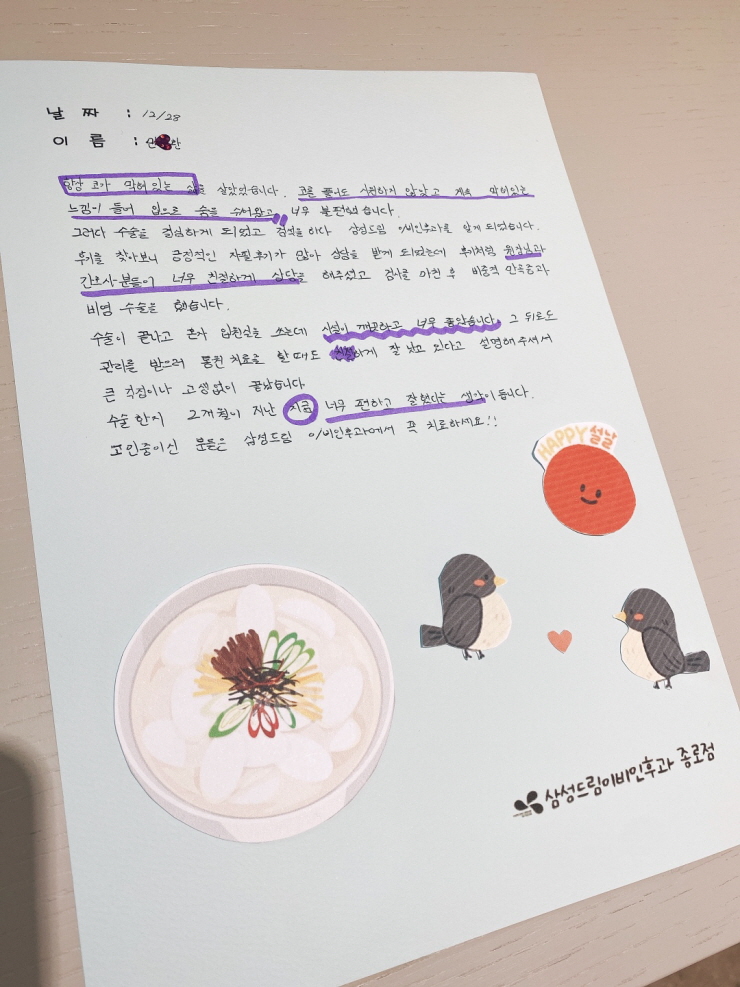 날 짜 : 12/28
이 름 : 안 란
항상 코가 막혀 있는 삶을 살았었습니다. 코를 풀어도 시원하지 않았고 계속 막혀있는
느낌이 들어 입으로 숨을 쉬어왔고 너무 불편했습니다.
그러다 수술을 결심하게 되었고 검색을 하다 삼성드림 이비인후과를 알게 되었습니다.
후기를 찾아보니 긍정적인 자필후기가 많아 상담을 받게 되었는데 후기처럼 원장님과
간호사분들이 너무 친절하게 상담을 해주셨고 검사를 마친 후 비중격 만곡증과
비염 수술을 했습니다.
수술이 끝나고 혼자 입원실을 쓰는데 시설이 깨끗하고 너무 좋았습니다. 그 뒤로도
관리를 받으러 통원 치료를 할때도 하게 잘 낫고 있다고 설명해주셔서
큰 걱정이나 고생없이 끝났습니다
수술 한지 2개월이 지난 지금 너무 편하고 잘했다는 생각이 듭니다.
고민중이신 분들은 삼성드림 이비인후과에서 꼭 치료하세요!!
HAPPY 설날
삼성드림이비인후과 종로점